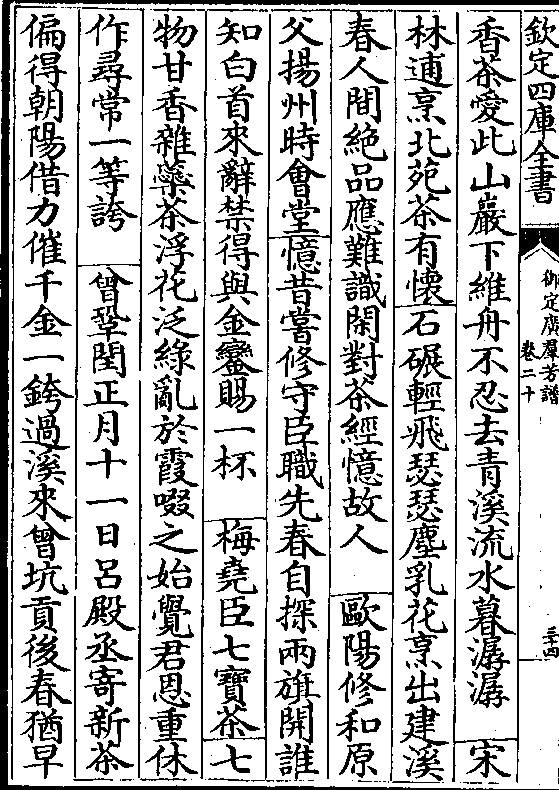 欽定四庫全書
御定廣羣芳譜
卷二十
三十四
香茶愛此山巖下維舟不忍去青溪流水暮潺潺 宋
林逋烹北苑茶有懷石碾輕飛瑟瑟塵乳花烹出建溪
春人間絶品應難識閑對茶經憶故人 歐陽修和原
父揚州時會堂憶昔嘗修守臣職先春自探兩旗開誰
知白首來辭禁得與金鑾賜一杯 梅堯臣七寶茶七
物甘香雜蘂茶浮花泛綠亂於霞啜之始覺君恩重休
作尋常一等誇 曾鞏閏正月十一日呂殿丞寄新茶
偏得朝陽借力催千金一銙過溪來曾坑貢後春猶早